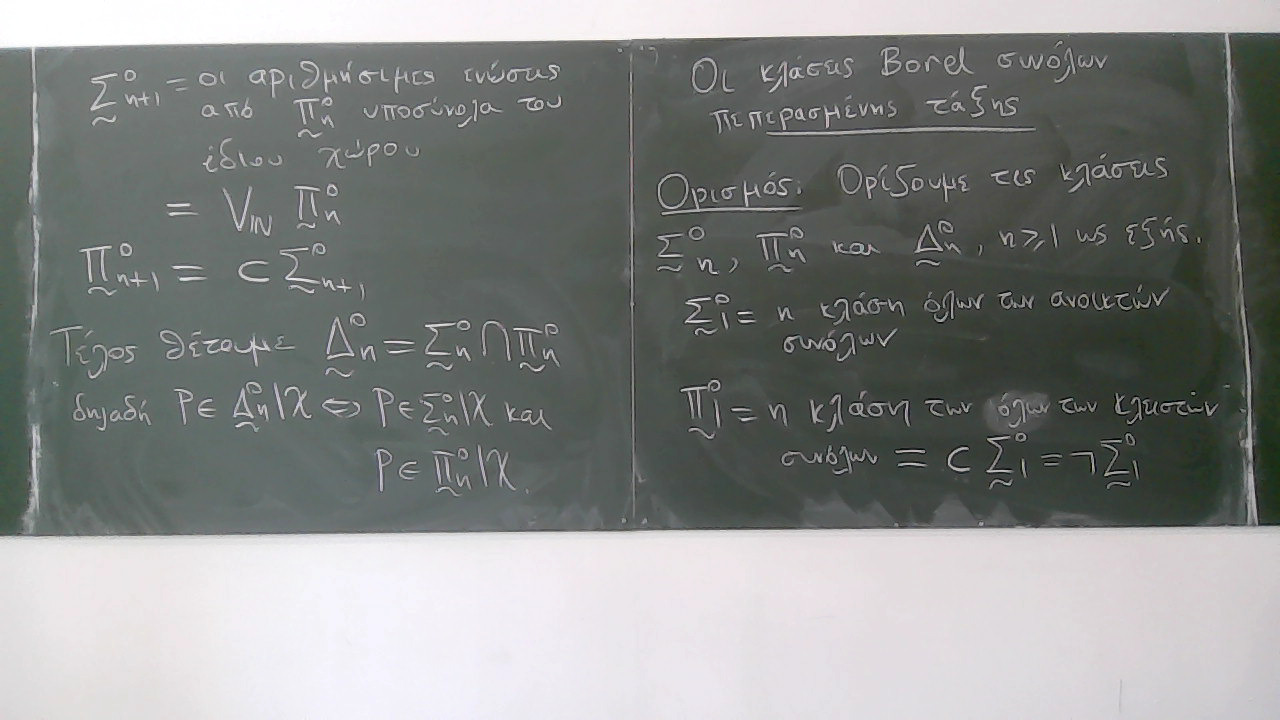 Σ̰⁰ₙ₊₁ = οι αριθμήσιμες ενώσεις
από Π̰⁰ₙ υποσύνολα του
ίδιου χώρου
= V_ℕ Π̰⁰ₙ
Π̰⁰ₙ₊₁ = c Σ̰⁰ₙ₊₁
Τέλος θέτουμε Δ̰⁰ₙ = Σ̰⁰ₙ ∩ Π̰⁰ₙ
δηλαδή P ∈ Δ̰⁰ₙ|X ⇔ P ∈ Σ̰⁰ₙ|X και
P ∈ Π̰⁰ₙ|X.
Οι κλάσεις Borel συνόλων
πεπερασμένης τάξης
Ορισμός. Ορίζουμε τις κλάσεις
Σ̰⁰ₙ, Π̰⁰ₙ και Δ̰⁰ₙ, n ≥ 1 ως εξής.
Σ̰⁰₁ = η κλάση όλων των ανοικτών
συνόλων
Π̰⁰₁ = η κλάση των όλων των κλειστών
συνόλων = c Σ̰⁰₁ = ¬Σ̰⁰₁